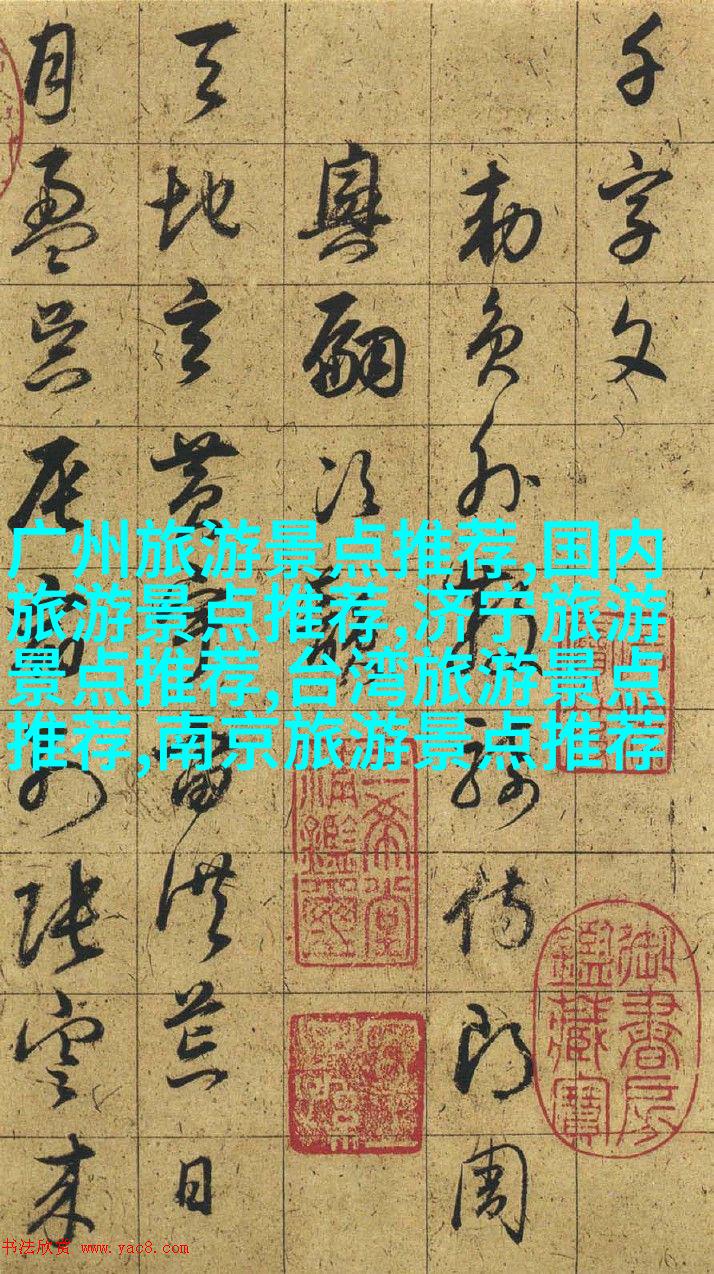 千字文
勅員外散騎侍郎周
興嗣次韻
天地玄黄宇宙洪荒日
月盈昃辰宿列張寒来
广州旅游景点推荐,国内
旅游景点推荐,济宁旅游
景点推荐,台湾旅游景点
推荐,南京旅游景点推荐
三希堂
精鑑璽
御書房
鑑藏寶
书法欣赏 www.yac8.com